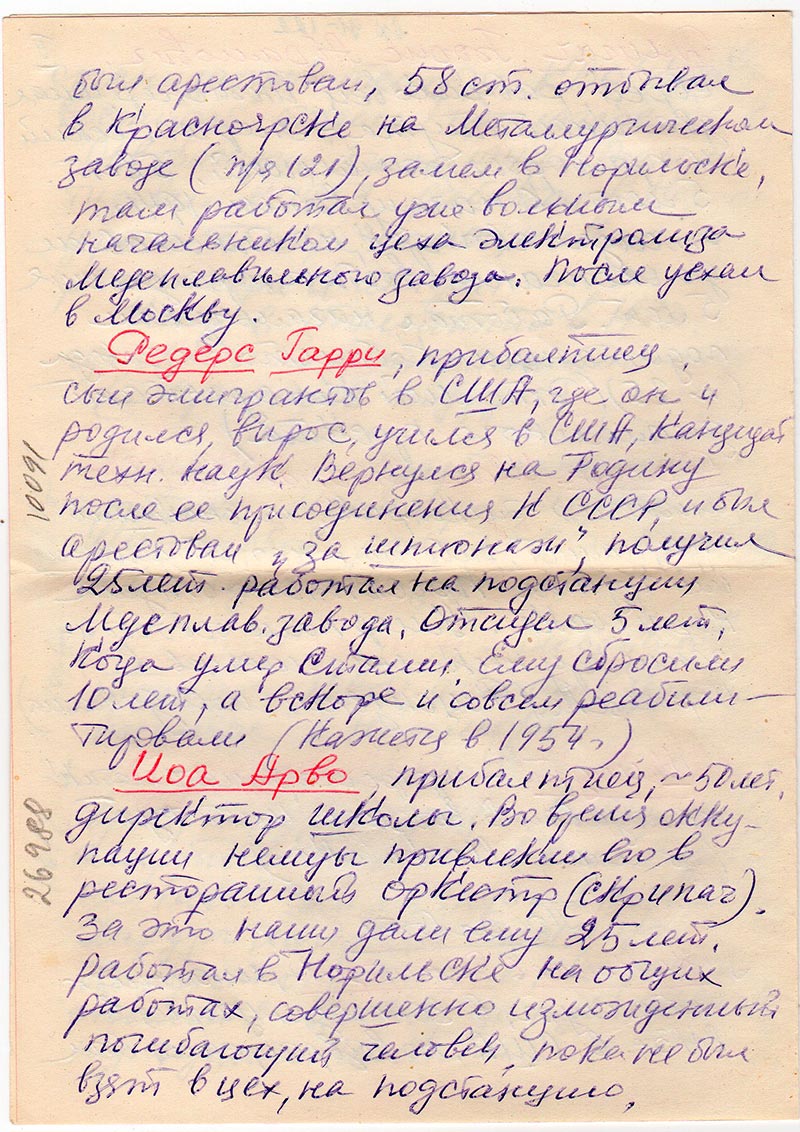 был арестован, 58 ст. отбывал
в Красноярске на Металлургическом
заводе (п/я 121), затем в Норильске,
там работал уже вольным
начальником цеха электролиза
Медеплавильного завода. После уехал
в Москву.
Редерс Гарри, прибалтиец,
сын эмигрантов в США, где он и
родился, вырос, учился в США, Кандидат
техн. наук. Вернулся на Родину
после ее присоединения к СССР, и был
арестован „за шпионаж", получил
25 лет. работал на подстанции
Медеплав. завода. Отсидел 5 лет,
когда умер Сталин. Ему сбросили
10 лет, а вскоре и совсем реабили-
тировали (кажется в 1954 г)
10091
Иоа Арво, прибалтиец, ~50 лет,
директор школы. Во время окку-
пации немцы привлекли его в
ресторанный оркестр (скрипач).
За это наши дали ему 25 лет.
работал в Норильске на общих
работах, совершенно изможденный
погибающий человек, пока не был
взят в цех, на подстанцию,
26988